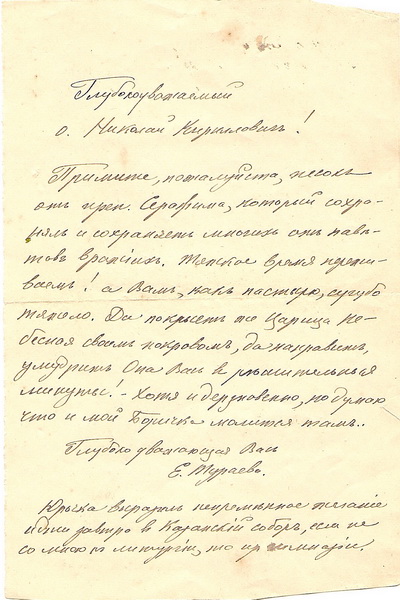 Глубокоуважаемый
о. Николай Кириллович!
Примите, пожалуйста, песокъ
отъ преп. Серафима, который сохра-
нялъ и сохраняетъ многихъ отъ навѣ-
товъ вражiихъ. Тяжкое время пережи-
ваемъ! а Вамъ, какъ пастырю, сугубо
тяжело. Да покрыетъ же Царица Не-
бесная своимъ покровомъ, да направитъ,
умудритъ Она Васъ в рѣшительныя
минуты! - Хотя и дерзновенно, но думаю
что и мой Боричка молится тамъ..
Глубоко уважающая Васъ
Е. Тураева.
выразилъ непремѣнное желанiе
идти завтра в Казанскiй соборъ, если не
со мною къ литургiи, то